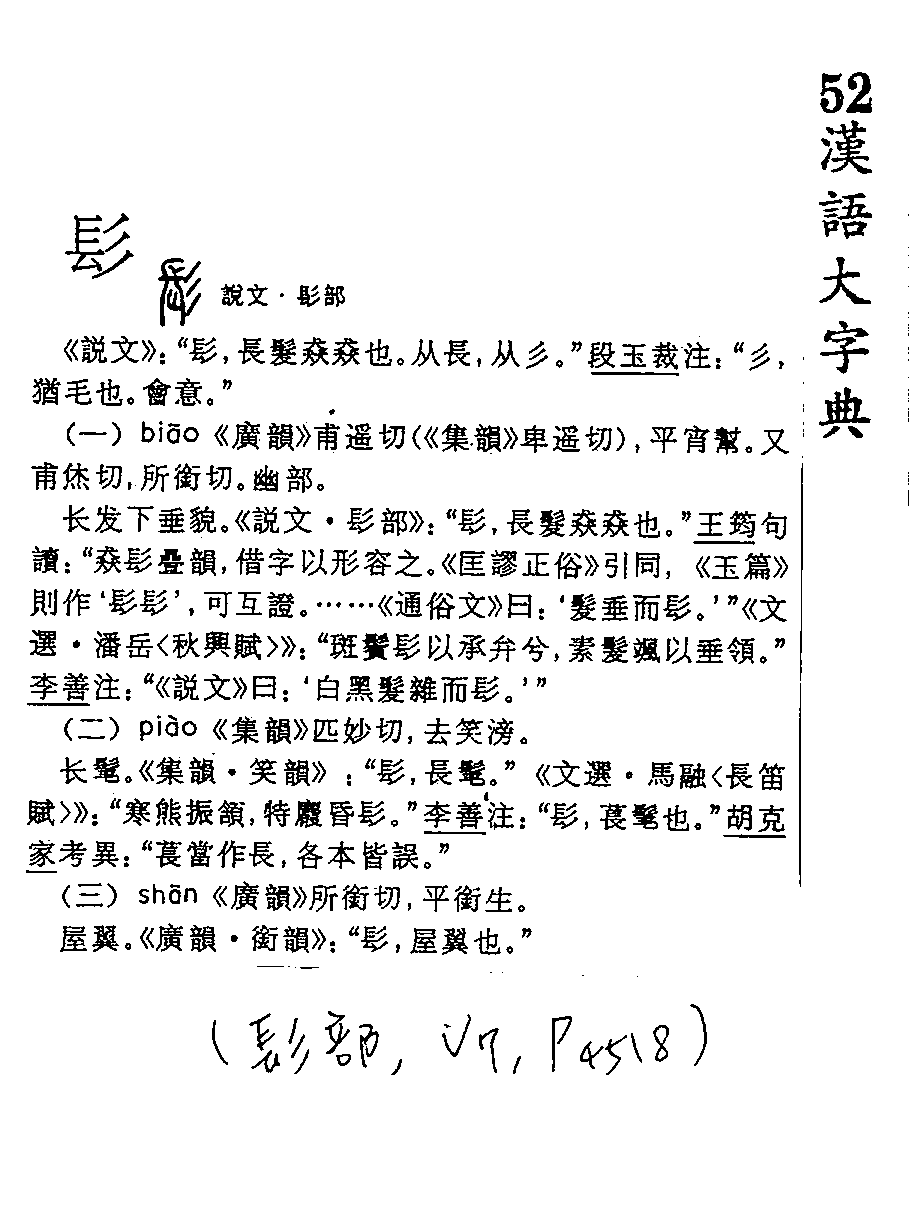 52漢語大字典
髟
說文·髟部
《説文》：“髟，長髮猋猋也。从長，从彡。”段玉裁注：“彡，
猶毛也。會意。”
（一）biāo《廣韻》甫遥切（《集韻》卑遥切），平宵幫。又
甫烋切，所銜切。幽部。
长发下垂貌。《説文·髟部》：“髟，長髮猋猋也。”王筠句
讀：“猋髟疊韻，借字以形容之。《匡謬正俗》引同，《玉篇》
則作‘髟髟’，可互證。……《通俗文》曰：‘髮垂而髟。’”《文
選·潘岳〈秋興賦〉》：“斑鬢髟以承弁兮，素髮颯以垂領。”
李善注：“《説文》曰：‘白黑髮雜而髟。’”
（二）piào《集韻》匹妙切，去笑滂。
长髦。《集韻·笑韻》：“髟，長髦。”《文選·馬融〈長笛
賦〉》：“寒熊振頷，特麚昏髟。”李善注：“髟，萇髦也。”胡克
家考異：“萇當作長，各本皆誤。”
（三）shān《廣韻》所銜切，平銜生。
屋翼。《廣韻·銜韻》：“髟，屋翼也。”
(髟部, V7, P4518)